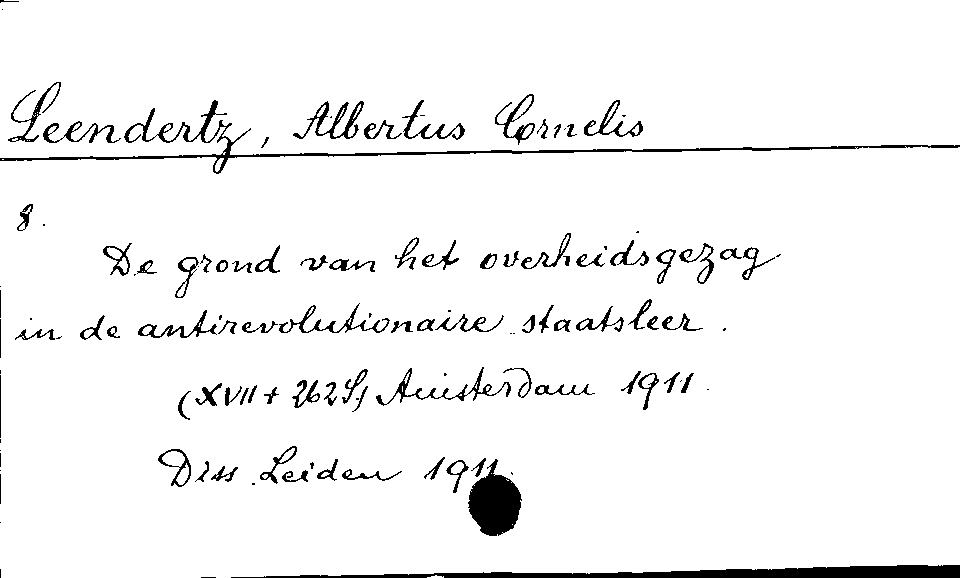 Leendertz, Albertus Cornelis
8.
De grond van het overheidsgezag
in de antirevolutionaire staatsleer.
(XVII + 262 S) Amsterdam 1911.
Diss. Leiden 1911.